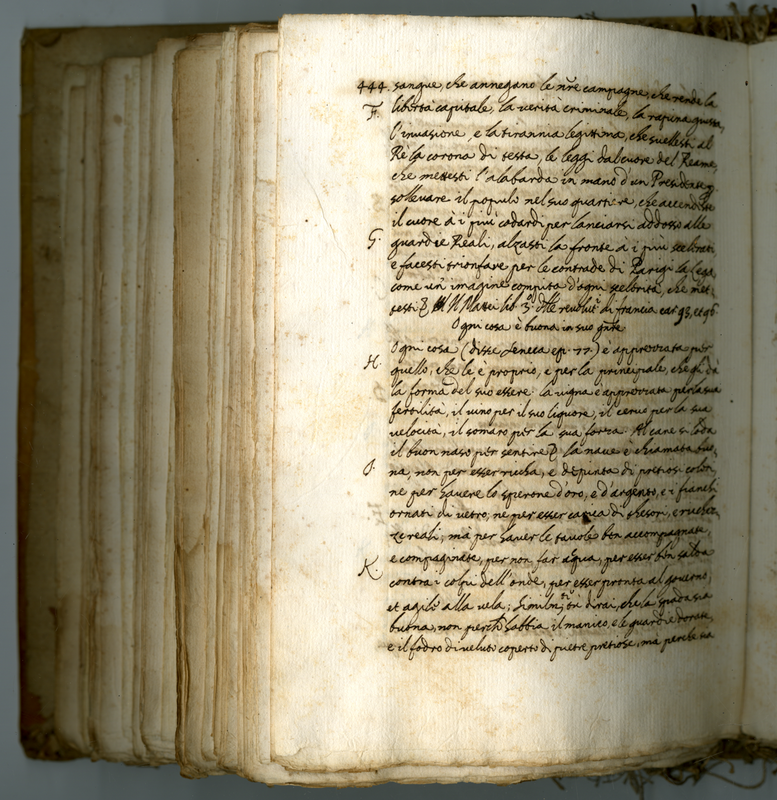 444. sangue, che annegano le nr̃e campagne, che rende la
F. libertà capitale, la verità criminale, la rapina giusta,
l'invasione, e la tirannia legittima, che svellesti al
Rè la corona di testa, le leggi dal cuore del Reame,
che mettesti l'alabarda in mano d'un Presidente p
sollevare il populo nel suo quartiere, che accendesti
il cuore à i più codardi per lanciarsi addosso alle
G. guardie Reali, alzasti la fronte a i più scelerati,
e facesti trionfare per le contrade di Parigi la Lega
come un' imagine compita d'ogni scelerità, che met
testi Mattei lib. 3. delle revolut. di francia car. 93. et 96.
Ogni cosa è buona in suo gñre
Ogni cosa (disse Seneca ep. 77.) è apprezzata per
H. quello, che le è proprio, e per la principale, che gli dà
la forma del suo essere: la vigna è apprezzata per la sua
fertilità, il vino per il suo liquore, il cervo per la sua
velocità, il somaro per la sua forza. Al cane si loda
il buon naso per sentire la nave è chiamata buo,
J. na, non per esser ricca, e depinta di pretiosi colori,
ne per havere lo sperone d'oro, e d'argento, e i fianchi
ornati di vetro; ne per esser carica di thesori, e richez,
ze reali; mà per haver le tavole ben accompagnate,
e compaginate, per non far aqua, per esser ben salda
K. contra i colpi dell'onde, per esser pronta al governo,
et agile alla vela; Similm.te tu dirai, che la spada sia
buona, non perche habbia il manico, e le guardie dorate,
e il fodro di veluto coperto di pietre pretiose, mà perche sia